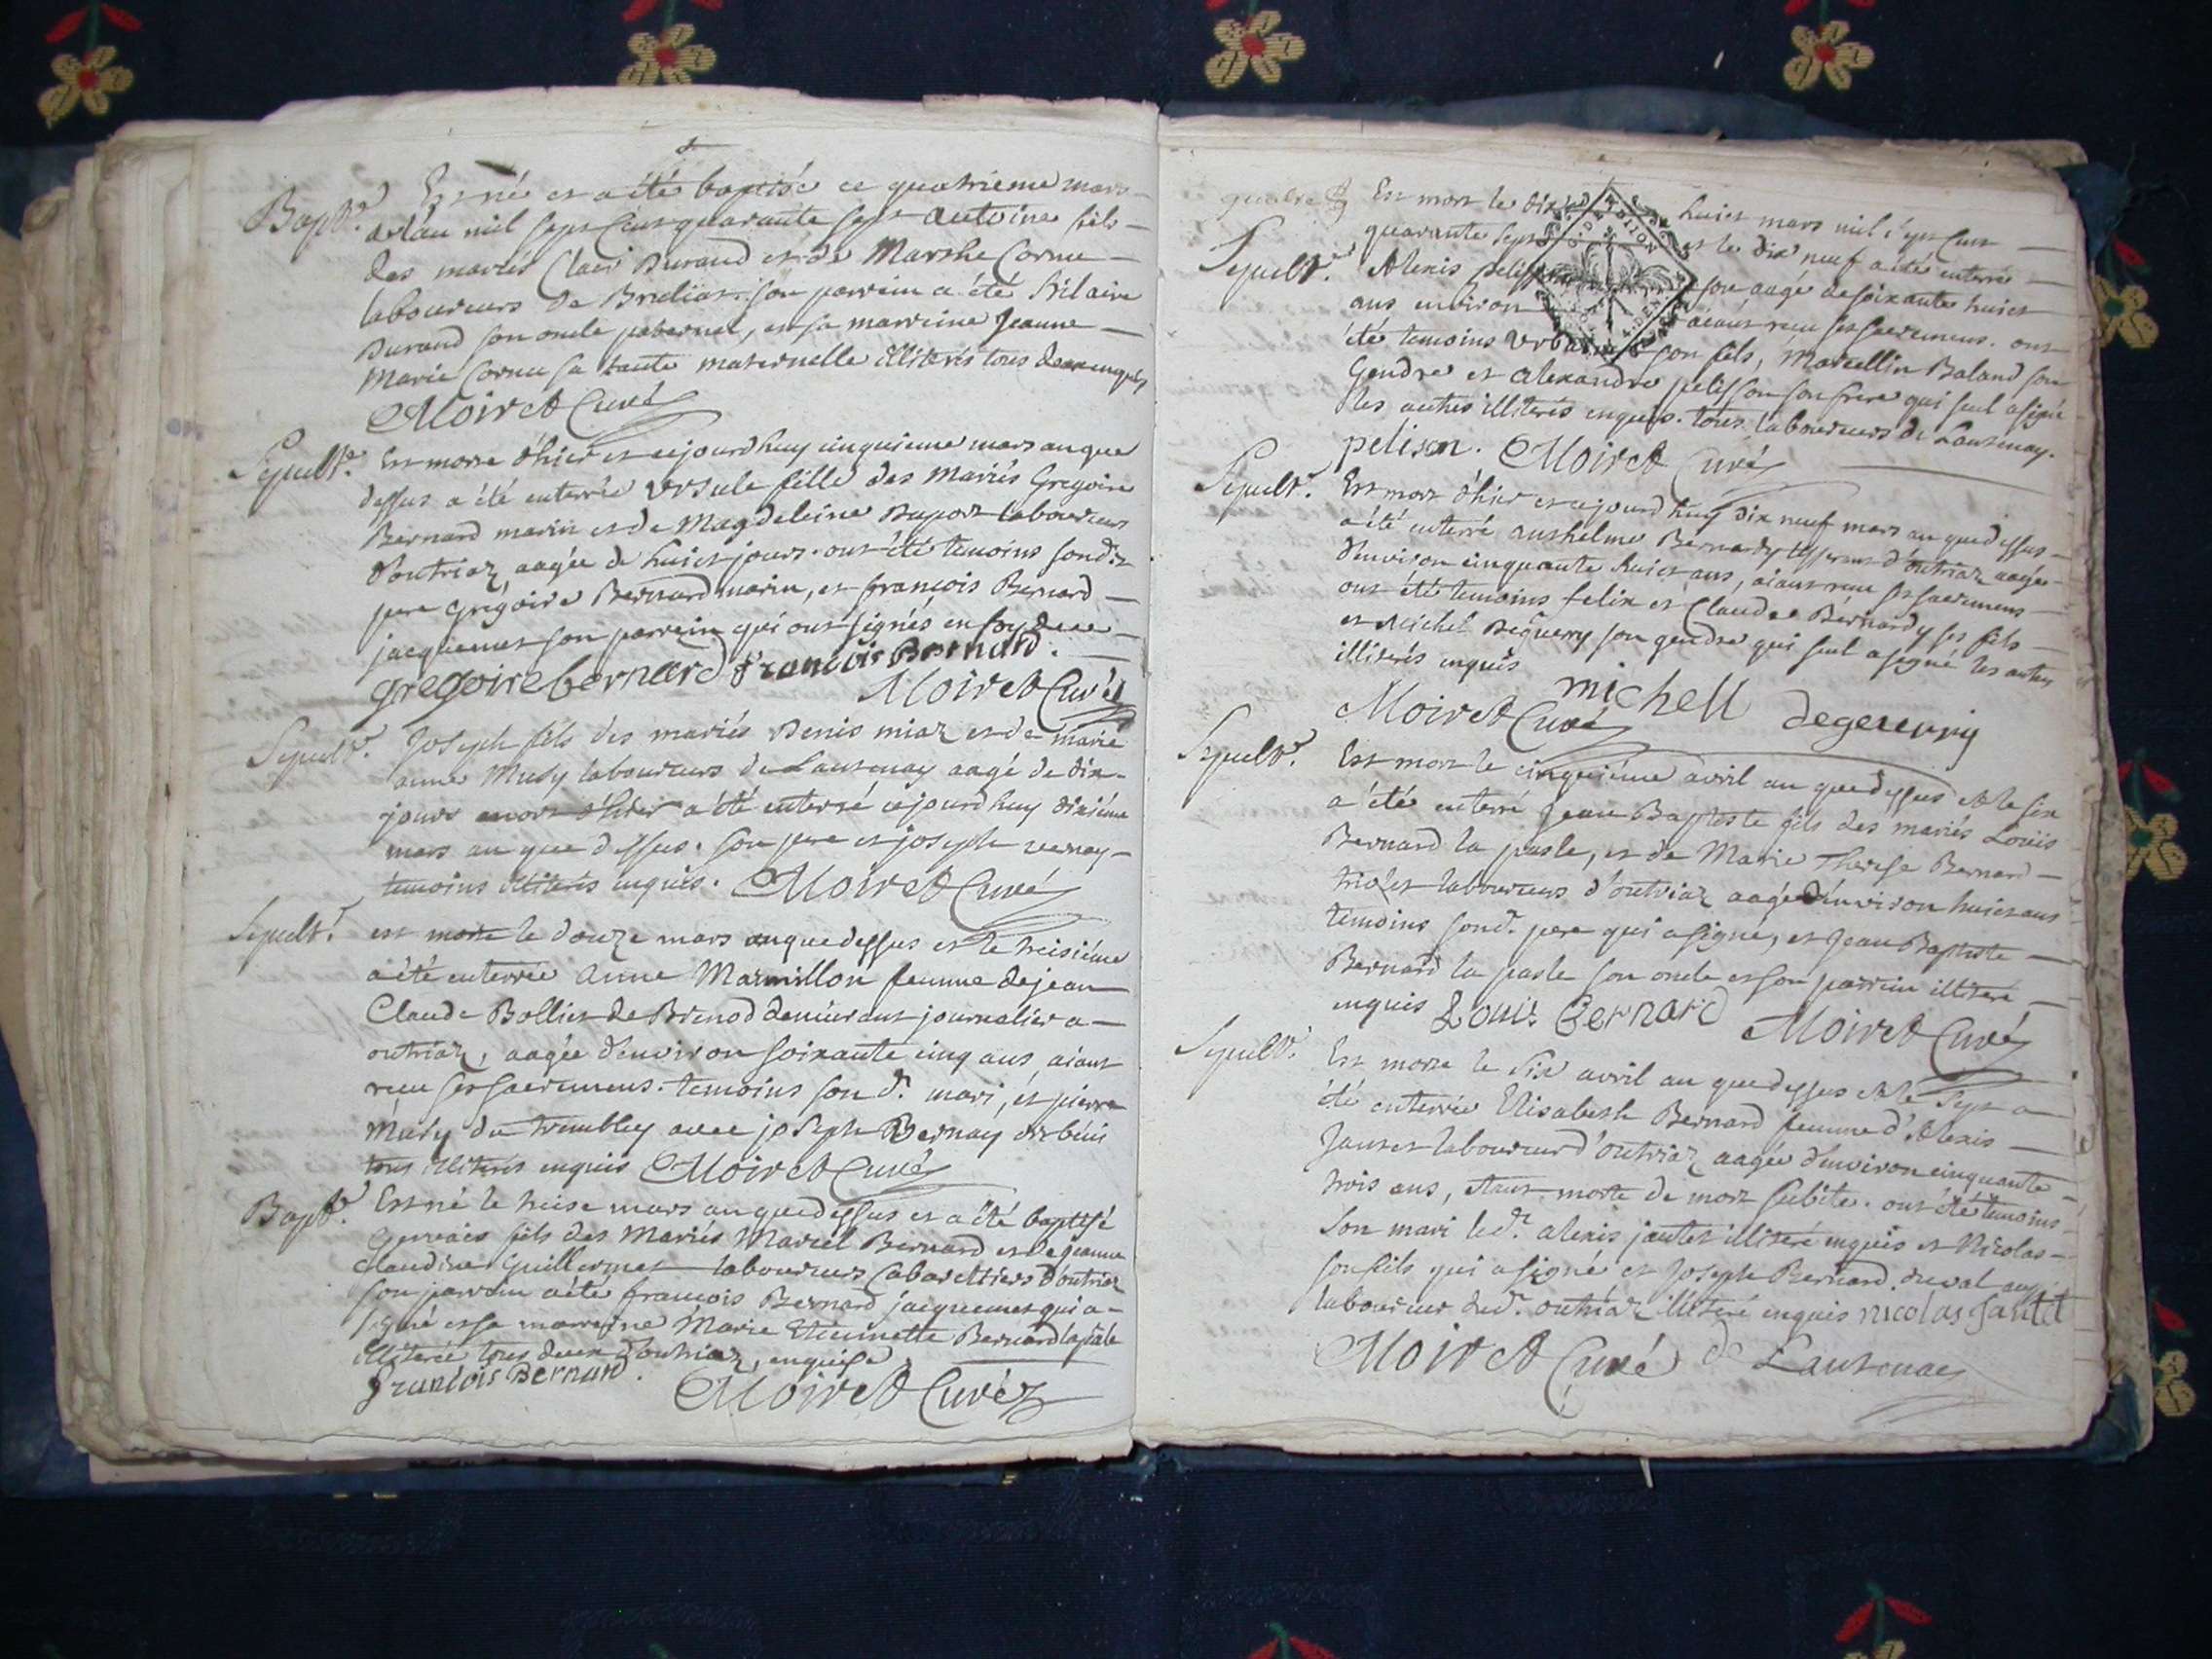 Bapt.e Est né et a été baptisé ce quatrieme mars
de l'an mil sept cens quarante sept antoine fils
des mariés Clair Durand et de Marthe Cornu
laboureurs de son parrein a été hilaire
Durand son oncle paternel, et sa marreine Jeanne
Marie Cornu sa tante maternelle illiterés tous deux enquis
Moiret Curé
Sepult.e Est morte d'hier et cejourdhuy cinquieme mars an que
dessus a été enterrée Ursule fille des Mariés Gregoire
Bernard marin et de Magdeleine Dupor laboureurs
d'outriaz, aagée de huict jours. ont été temoins son d.t
pere gregoire Bernard marin, et françois Bernard
jacquemet son parrein qui ont signés en foy de ce
gregoire bernard françois Bernard.
Moiret Curé
Sepult.e Joseph fils des mariés Denis miaz et de marie
anne Mury laboureurs de Lantenay aagé de dix
jours mort d'hier a été enterré cejourdhuy dixième
mars an que dessus. son pere et joseph vernay
temoins illiterés enquis. Moiret Curé
Sepult.e est morte le douze mars an que dessus et le treisième
a été enterrée anne Marmillon femme de jean
Claude Bollier de Brenod demeurant journalier a
outriaz, aagée d'environ soixante cinq ans, aiant
reçu ses sacremens. temoins son d.t mari, et pierre
Mury du trembley avec joseph Bernay
tous illiterés enquis Moiret Curé
Bapt.e Est né le treise mars an que dessus et a été baptisé
Gervais fils des Mariés Marcel Bernard et de jeanne
claudine Guillermet laboureurs cabarettiers d'outriaz
son parrein a été françois Bernard jacquemet qui a
signé et sa marreine Marie Bernard lapasle
illiterée tous deux d'outriaz, enquise
françois Bernard. Moiret Curé
Est mort le dix huict mars mil sept cens
quarante sept et le dix neuf a été enterré
Sepult.e Alexis pelisson aagé de soixante huict
ans environ aiant reçu ses sacremens. ont
été temoins son fils, Marcellin Baland son
Gendre et alexandre pelisson son frere qui seul a signé
les autres illiterés enquis. tous laboureurs de Lantenay.
pelison. Moiret Curé
Sepult.e Est mort d'hier et cejourdhuy dix neuf mars an que dessus
a été enterré anthelme Bernardy d'outriaz aagé
d'environ cinquante huict ans, aiant reçu ses sacremens
ont été temoins felix et Claude Bernardy ses fils
et Michel Deguerry son gendre qui seul a signé les autres
illiterés enquis
Moiret Curé michell
Sepult.e Est mort le cinquième avril an que dessus et le six
a été enterré jean Baptiste fils des mariés Louis
Bernard la pasle, et de Marie Therese Bernard
triolet laboureurs d'outriaz aagé d'environ huict ans
temoins son d.t pere qui a signé, et jean Baptiste
Bernard la pasle son oncle et son parrein illiteré
enquis Louis Bernard Moiret Curé
Sepult.e Est morte le six avril an que dessus et le sept a
été enterrée Elisabeth Bernard femme d'Alexis
Jantet laboureur d'outriaz aagée d'environ cinquante
trois ans, etant morte de mort subite. ont été temoins
son mari le d.t alexis jantet illiteré enquis et Nicolas
son fils qui a signé et Joseph Bernard duval aussi
laboureur dud.t outriaz illiteré enquis nicolas Jantet
Moiret Curé de Lantenay